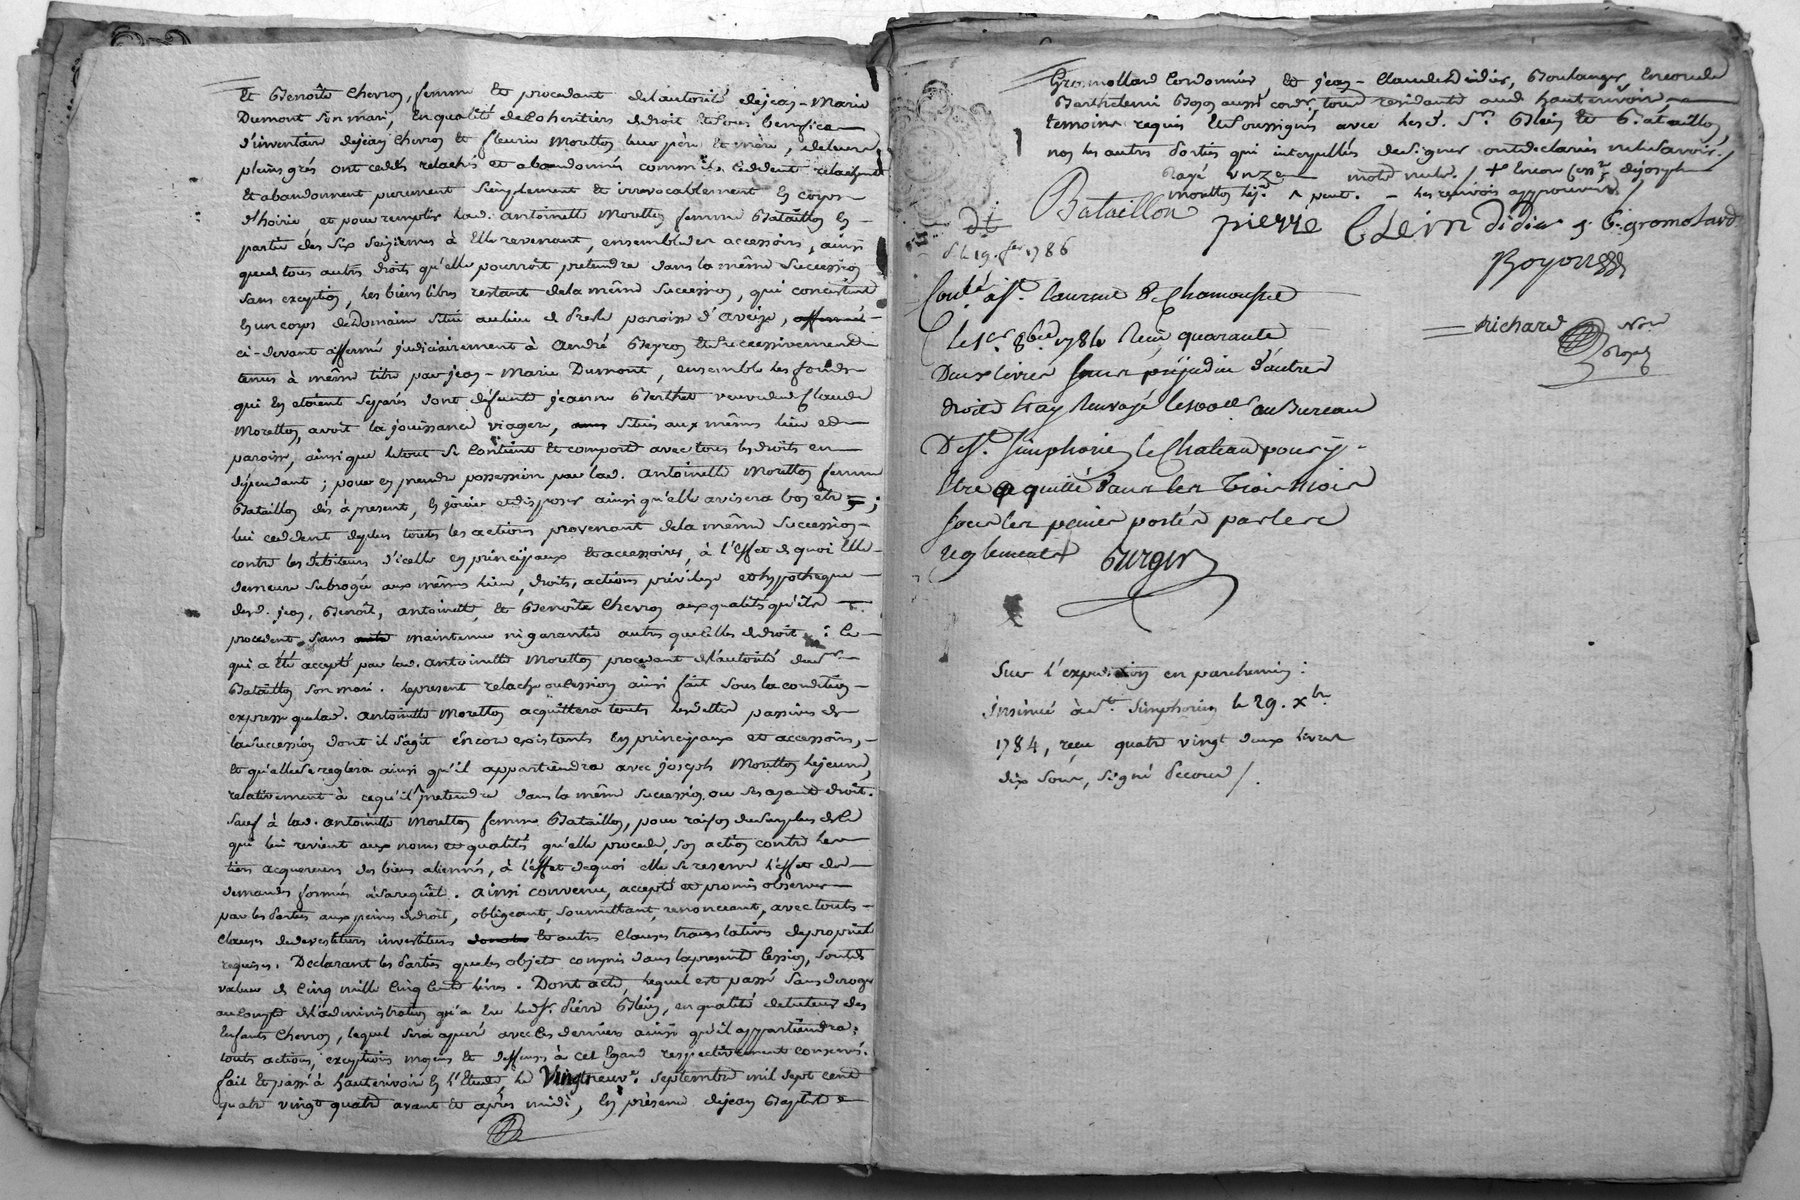 Et Benoîte Chevron, femme Et procedant de l'autorité de jean-Marie
Dumont son mari, En qualité de Coheritiers de droit Et sous benefice
d'inventaire de jean Chevron Et fleurie Moretton leur père Et mère, de leurs
pleins grés ont cedés relachés et abandonnés comme ils Ceddent relachent
Et abandonnent purement simplement Et irrevocablement En corps
d'hoirie et pour remplir lad. antoinette Moretton femme Bataillon En
partie des six seiziemes à Elle revenant, ensemble des accessoirs, ainsi
que de tous autres droits qu'elle pourroit pretendre dans la même Succession
sans exception, les biens libres restant de la même Succession, qui concistent
En un corps de Domaine situé au lieu de paroisse d'aveize,
ci-devant affermé judiciairement à andré Et successivement
tenus à même titre par jean-Marie Dumont, ensemble les fonds
qui En etoient separés dont défunte jeanne Berthet veuve de Claude
Moretton, avoit la jouissance viagere, situés aux mêmes lieu et
paroisse, ainsi que le tout se Contient Et comporte avec tous les droits en
dépendant; pour en prendre possession par lad. antoinette Moretton femme
Bataillon dès à present, En jouir et disposer ainsi qu'elle avisera bon être;
lui ceddent de plus toutes les actions provenant de la même Succession
contre les debiteurs d'icelle En principaux Et accessoires, à l'Effet de quoi Elle
demeure subrogée aux mêmes lieu, droits, actions privilege et hypotheque
desd. jean, Benoît, antoinette Et Benoîte Chevron aux qualités qu'ils
procedent, sans maintenue ni garantie autres que celles de droit: Ce
qui a Eté accepté par lad. antoinette Moretton procedant de l'autorité dud. Sr.
Bataillon son mari. le present relache ou Cession ainsi fait sous la condition
expresse que lad. antoinette Moretton acquittera toutes les dettes passives de
la succession dont il s'agit Encore existants En principaux et accessoirs,
Et qu'elle se reglera ainsi qu'il appartiendra avec joseph Moretton le jeune,
relativement à ce qu'il ^ pretendre dans la même Succession ou ses ayant droit.
sauf à lad. antoinette Moretton femme Bataillon, pour raison du surplus de ce
qui lui revient aux noms et qualités qu'elle procede, son action contre les
tiers acquereurs des biens alienés, à l'effet de quoi elle se reserve l'effet des
demandes formées à sa requête. ainsi convenu, accepté et promis observer
par les parties aux peines de droit, obligeant, soumettant, renonceant, avec toutes
Clauses de devestiture investiture Et autres Clauses translatives de proprieté
requises. Declarant les parties que les objets compris dans la presente Cession, sont de
valeur de Cinq mille Cinq Cent livres. Dont acte, lequel est passé sans deroger
au compte de l'administration qu'a Eu led. Sr. Pierre Klein, en qualité de tuteur des
Enfants Chevron, lequel sera apuré avec ces derniers ainsi qu'il appartiendra;
toutes actions, exceptions moyens Et deffenses à cet Egard respectivement conservés.
fait Et passé à hauterivoire En l'Etude le Vingtneuve. septembre mil sept cent
quatre vingt quatre avant Et après midi, En présence de jean Baptiste
Gromollard Cordonnier Et jean-Claude Didier, Boulanger, Encore de
Barthelemi Boyon aussi cordr. tous residants aud. hauterivoire
temoins requis Et soussignés avec lesd. Srs. Klein Et Bataillon,
non les autres parties qui interpellés de signer ont declarés ne le savoir./
Rayé unze mots nuls./ + Encore de joseph
moretton lejne. ^ peut. - les renvois approuvés /
Bataillon pierre CLein didier J. B. gromolard
Boyon
Richard Nore.
Royal
d. le 19. fer. 1786
Conlé. à St. Laurent De Chamousset
Le 1er. 8bre 1784 Reçu quarante
Deux livres sans préjudice d'autres
droits Et ay Renvoyé les au Bureau
De St. Simphorien le Chateau pour y
Etre acquitté dans les Trois Mois
sous les peines portés par les
reglements Burgin
Sur l'expedition en parchemin:
insinué à St. Simphorien le 29. Xbre.
1784, reçu quatre vingt deux livres
dix sous, signé Decour /.